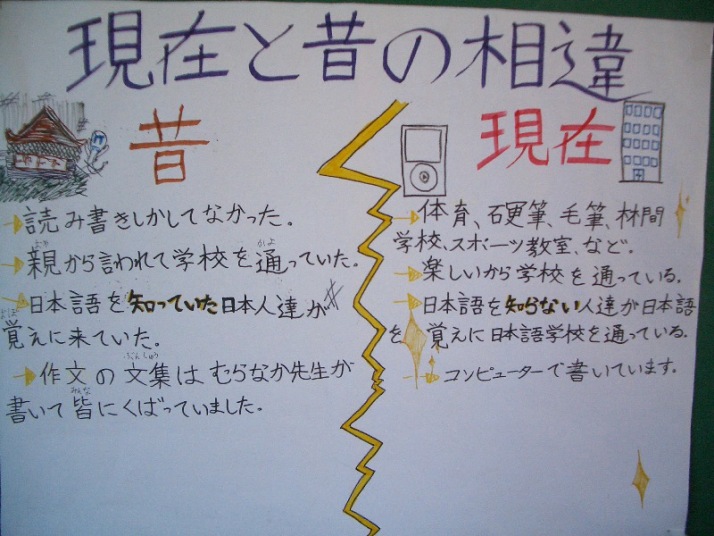 現在と昔の相違
昔
読み書きしかしてなかった。
親から言われて学校を通っていた。
日本語を知っていた日本人達が
覚えに来ていた。
作文の文集はむらなか先生が
書いて皆にくばっていました。
現在
体育、硬筆、毛筆、林間
学校、スポーツ教室、など。
楽しいから学校を通っている。
日本語を知らない人達が日本語
を覚えに日本語学校を通っている。
コンピューターで書いています。